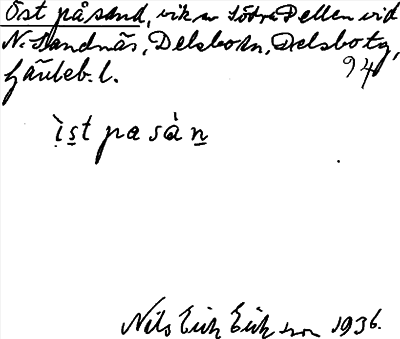 Öst på sand, vik av Södra Dellen vid
N. Sandnäs, Delsbo sn, Delsbo tg,
Gävleb. l. 94
ist pa sàn
Nils Erik Eriksson 1936.